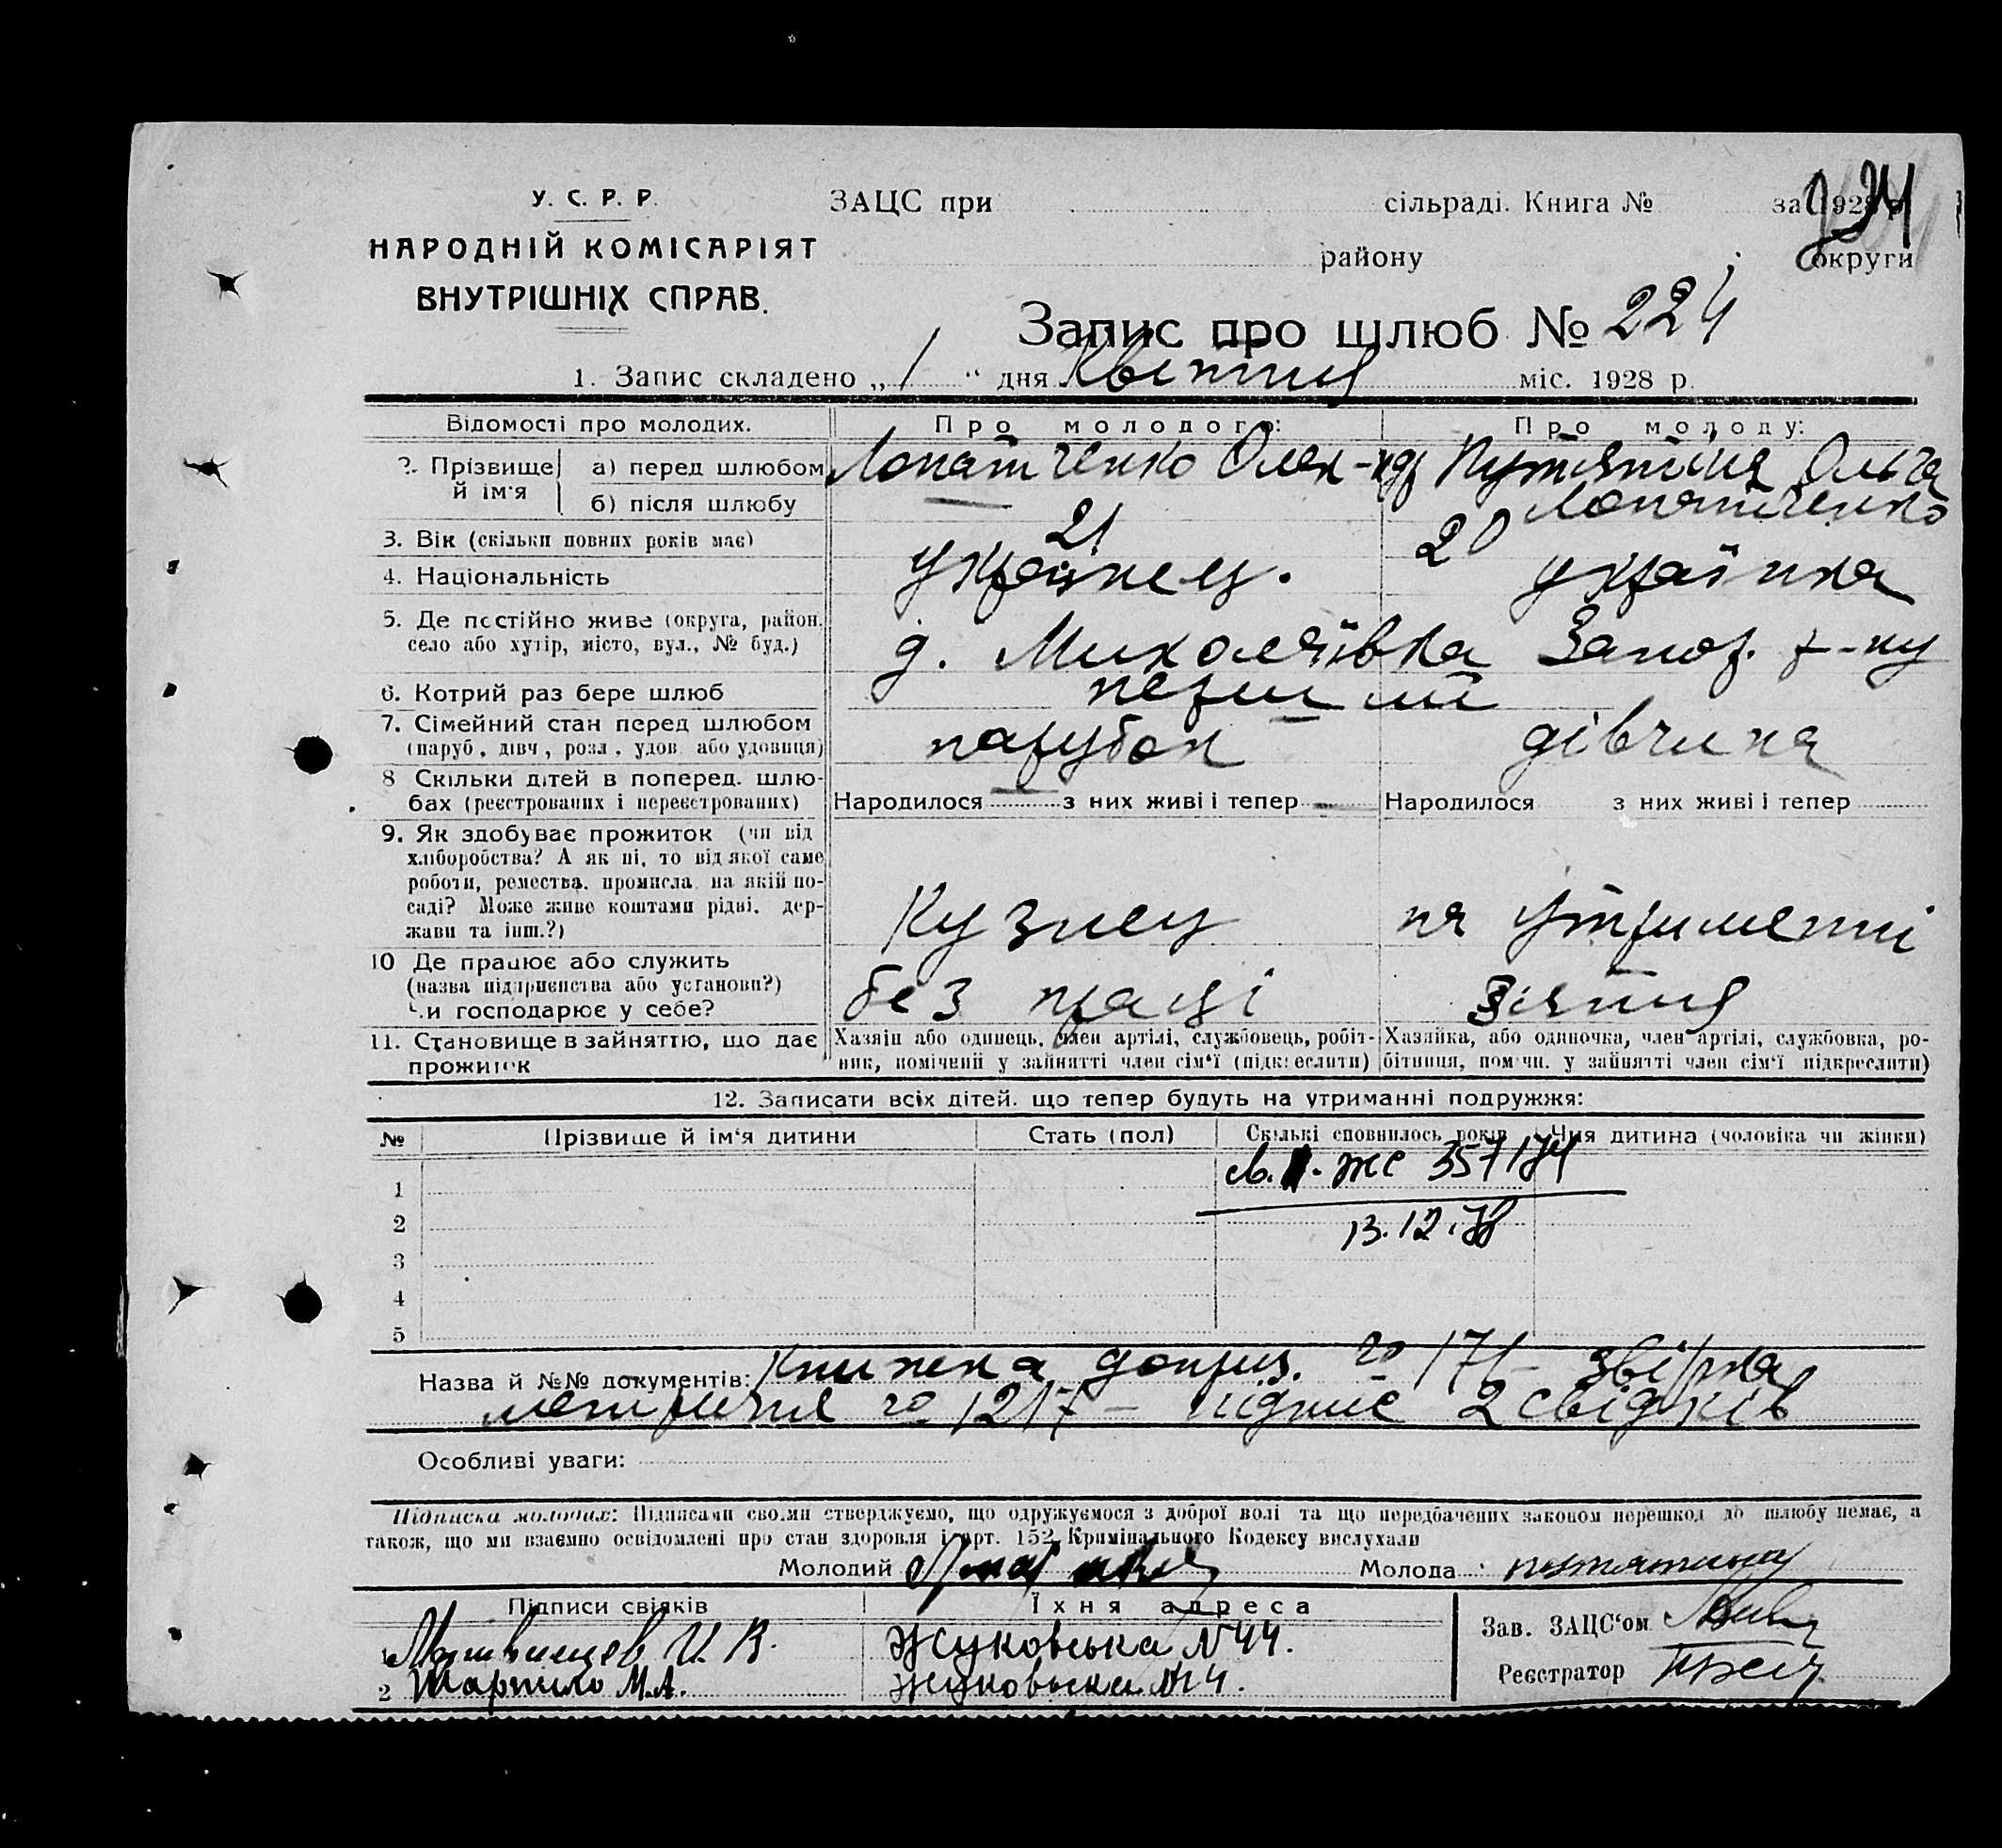 У. С. Р. Р.
НАРОДНІЙ КОМІСАРІЯТ
ВНУТРІШНІХ СПРАВ.
ЗАЦС при сільраді. Книга № за 1928 р.
району округи
Запис про шлюб № 224
1. Запис складено „1“ дня Квітня міс. 1928 р.
Відомості про молодих. Про молодого: Про молоду:
2. Прізвище й ім'я
а) перед шлюбом Лопатченко Олек-ндр Путятіна Ольга
б) після шлюбу — Лопатченко
3. Вік (скільки повних років має) 21 20
4. Національність українец. українка
5. Де постійно живе (округа, район,
село або хутір, місто, вул., № буд.) д. Миколаївка Запор. р-ну
6. Котрий раз бере шлюб перший
7. Сімейний стан перед шлюбом
(паруб., дівч., розл., удов. або удовиця) парубок дівчина
8 Скільки дітей в поперед. шлю-
бах (реєстрованих і нереєстрованих) Народилося — з них живі і тепер — Народилося з них живі і тепер
9. Як здобуває прожиток (чи від
хліборобства? А як ні, то від якої саме
роботи, ремества, промисла, на якій по-
саді? Може живе коштами рідні, дер-
жави та інш.?) Кузнец на утриманні
10 Де працює або служить
(назва підприємства або установи?)
Чи господарює у себе? без праці
11. Становище в зайняттю, що дає
прожиток
Хазяїн або одинець, член артілі, службовець, робіт-
ник, помічений у зайнятті член сім'ї (підкреслити)
Хазяйка, або одиночка, член артілі, службовка, ро-
бітниця, помічн. у зайнятті член сім'ї підкреслити)
12. Записати всіх дітей, що тепер будуть на утриманні подружжя:
№ Прізвище й ім'я дитини Стать (пол) Скількі сповнилось років Чия дитина (чоловіка чи жінки)
1
же 357174
2
13.12.78
3
4
5
Назва й №№ документів: Книжка доприз. № 171 – звірка
метрична № 1217 – підпис 2 свідків
Особливі уваги:
Підписка молодих: Підписами своїми стверджуємо, що одружуємося з доброї волі та що передбачених законом перешкод до шлюбу немає, а
також, що ми взаємно освідомлені про стан здоровля і арт. 152 Кримінального Кодексу вислухали
Молодий Молода путятина
Підписи свідків Їхня адреса
1 И. В. Жуковська N 44.
2 Шаршило М.А. Жуковська
Зав. ЗАЦС'ом
Реєстратор